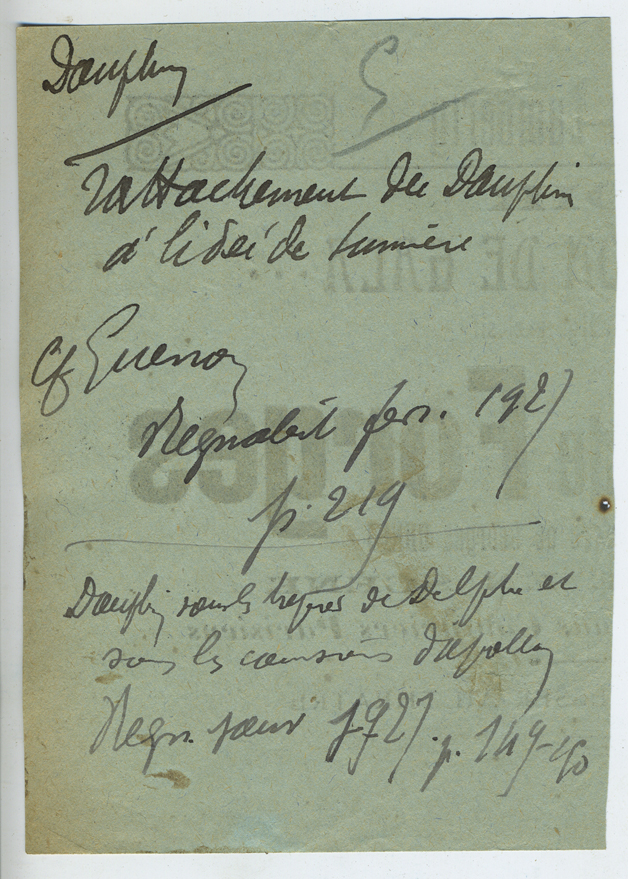 Dauphin
rattachement du Dauphin
à l'idée de lumière
Cf Guenon
Regnabit fev. 1927
p. 219
Dauphin sous les trépieds de Delphe et
sous les coursiers d'Apollon
Regn. janv 1927. p. 149-150